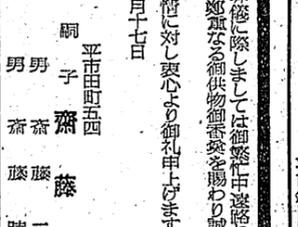 葬儀に際しましては御繁忙中遠路
鄭重なる御供物御香奠を賜わり誠
情に対し衷心より御礼申上げます
月十七日
平市田町五四
嗣子 齋藤
男 斎藤 一
男 斎藤